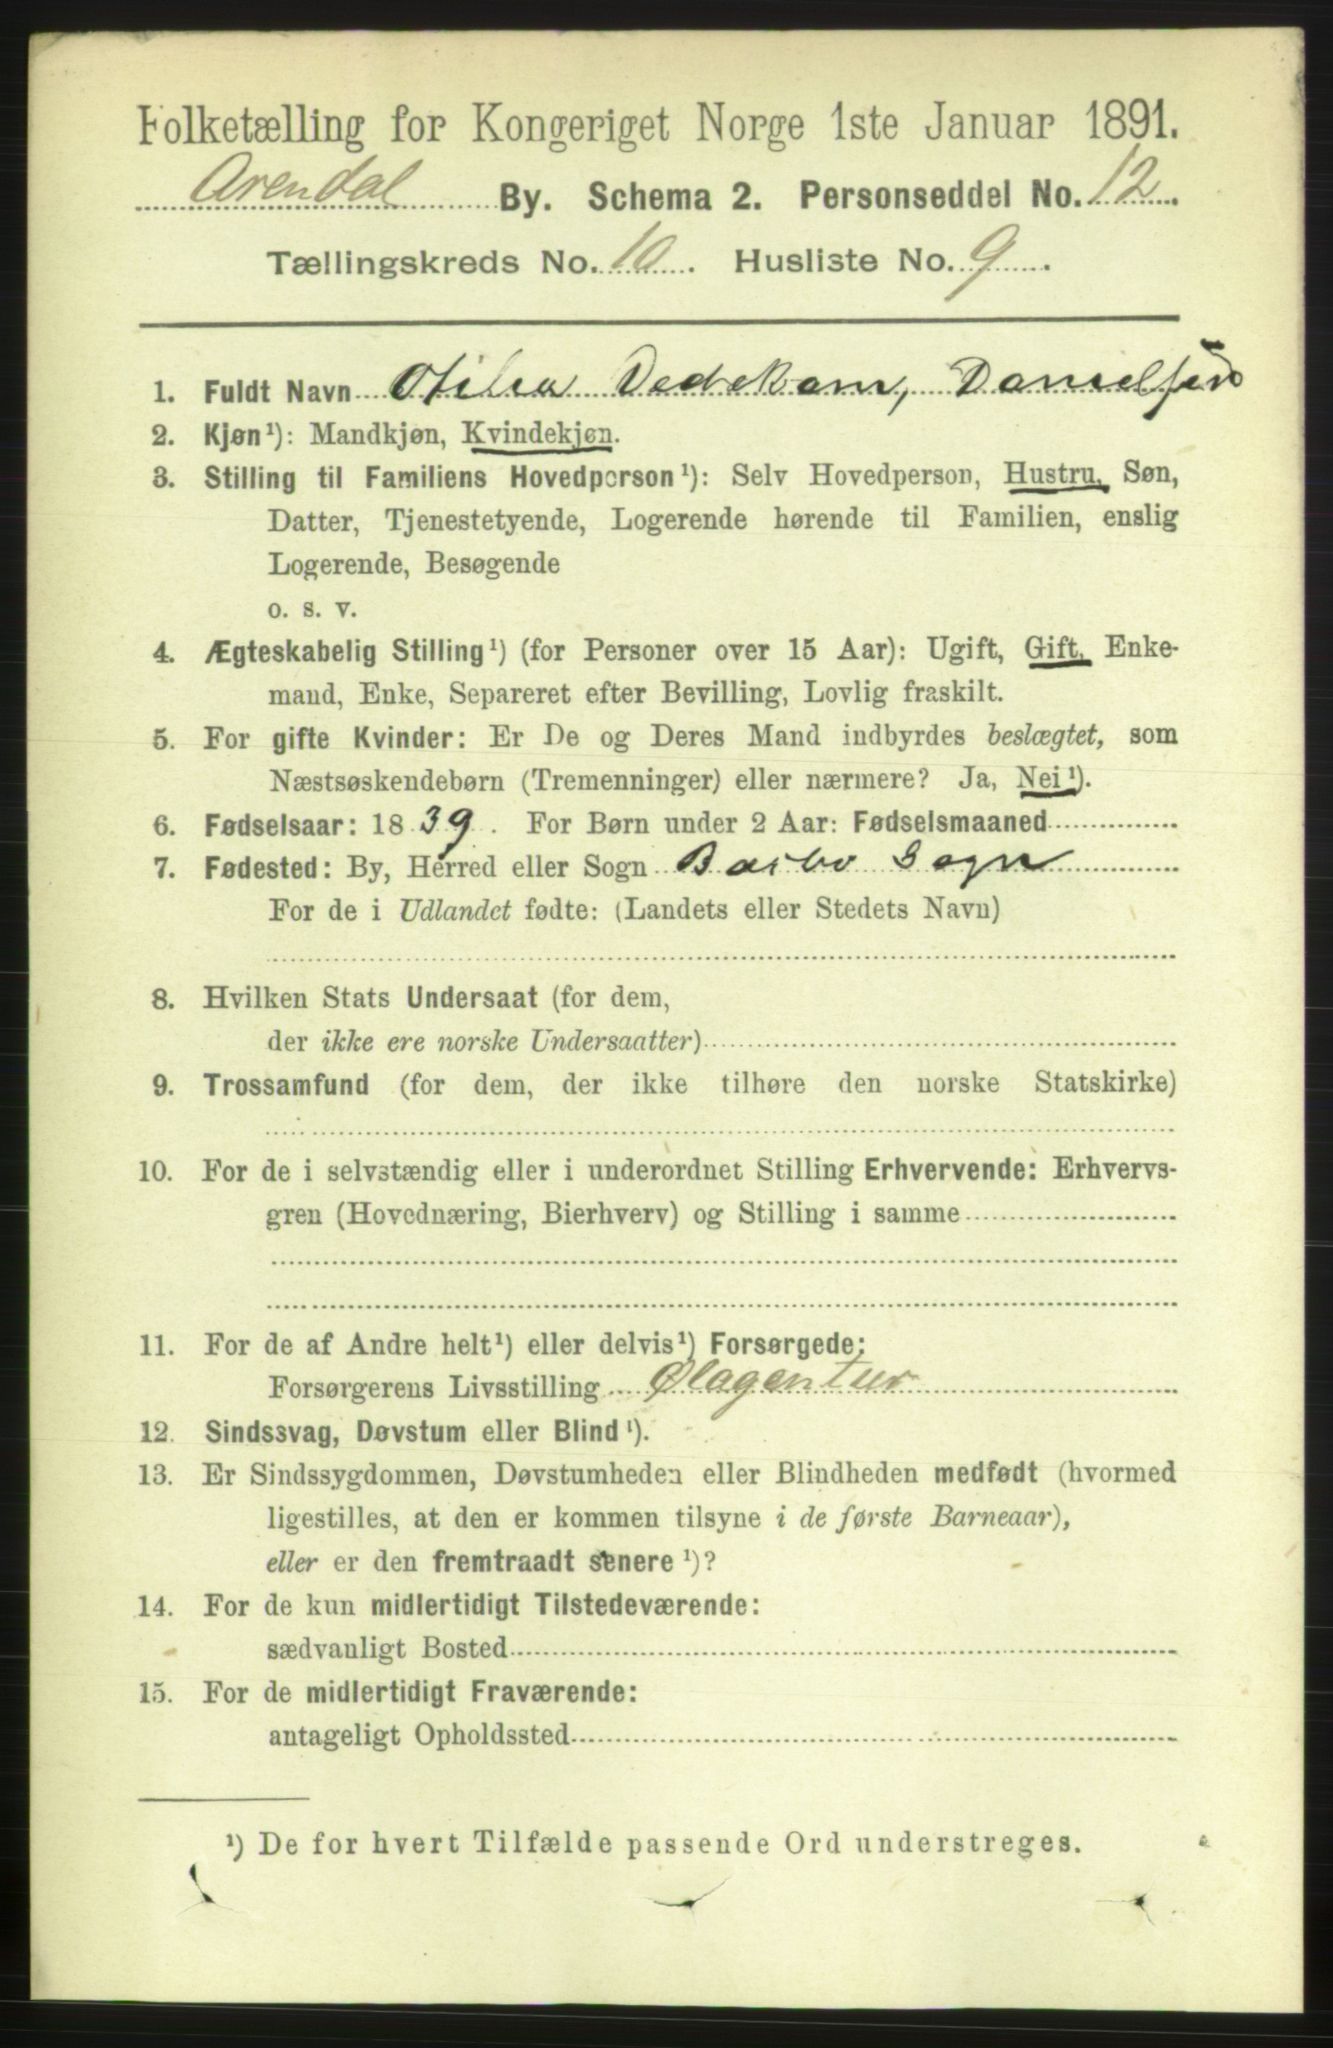 Folketælling for Kongeriget Norge 1ste Januar 1891.
Arendal By. Schema 2. Personseddel No. 12.
Tællingskreds No. 10. Husliste No. 9.
1. Fuldt Navn Otilia Dedekam, Danielsen
2. Kjøn¹): Mandkjøn, Kvindekjøn.
3. Stilling til Familiens Hovedperson¹): Selv Hovedperson, Hustru, Søn,
Datter, Tjenestetyende, Logerende hørende til Familien, enslig
Logerende, Besøgende
o. s. v.
4. Ægteskabelig Stilling¹) (for Personer over 15 Aar): Ugift, Gift, Enke-
mand, Enke, Separeret efter Bevilling, Lovlig fraskilt.
5. For gifte Kvinder: Er De og Deres Mand indbyrdes beslægtet, som
Næstsøskendebørn (Tremenninger) eller nærmere? Ja, Nei¹).
6. Fødselsaar: 1839. For Børn under 2 Aar: Fødselsmaaned
7. Fødested: By, Herred eller Sogn Barbo Sogn
For de i Udlandet fødte: (Landets eller Stedets Navn)
8. Hvilken Stats Undersaat (for dem,
der ikke ere norske Undersaatter)
9. Trossamfund (for dem, der ikke tilhøre den norske Statskirke)
10. For de i selvstændig eller i underordnet Stilling Erhvervende: Erhvervs-
gren (Hovednæring, Bierhverv) og Stilling i samme
11. For de af Andre helt¹) eller delvis¹) Forsørgede:
Forsørgerens Livsstilling Ølagentur
12. Sindssvag, Døvstum eller Blind¹).
13. Er Sindssygdommen, Døvstumheden eller Blindheden medfødt (hvormed
ligestilles, at den er kommen tilsyne i de første Barneaar),
eller er den fremtraadt senere¹)?
14. For de kun midlertidigt Tilstedeværende:
sædvanligt Bosted
15. For de midlertidigt Fraværende:
antageligt Opholdssted
¹) De for hvert Tilfælde passende Ord understreges.